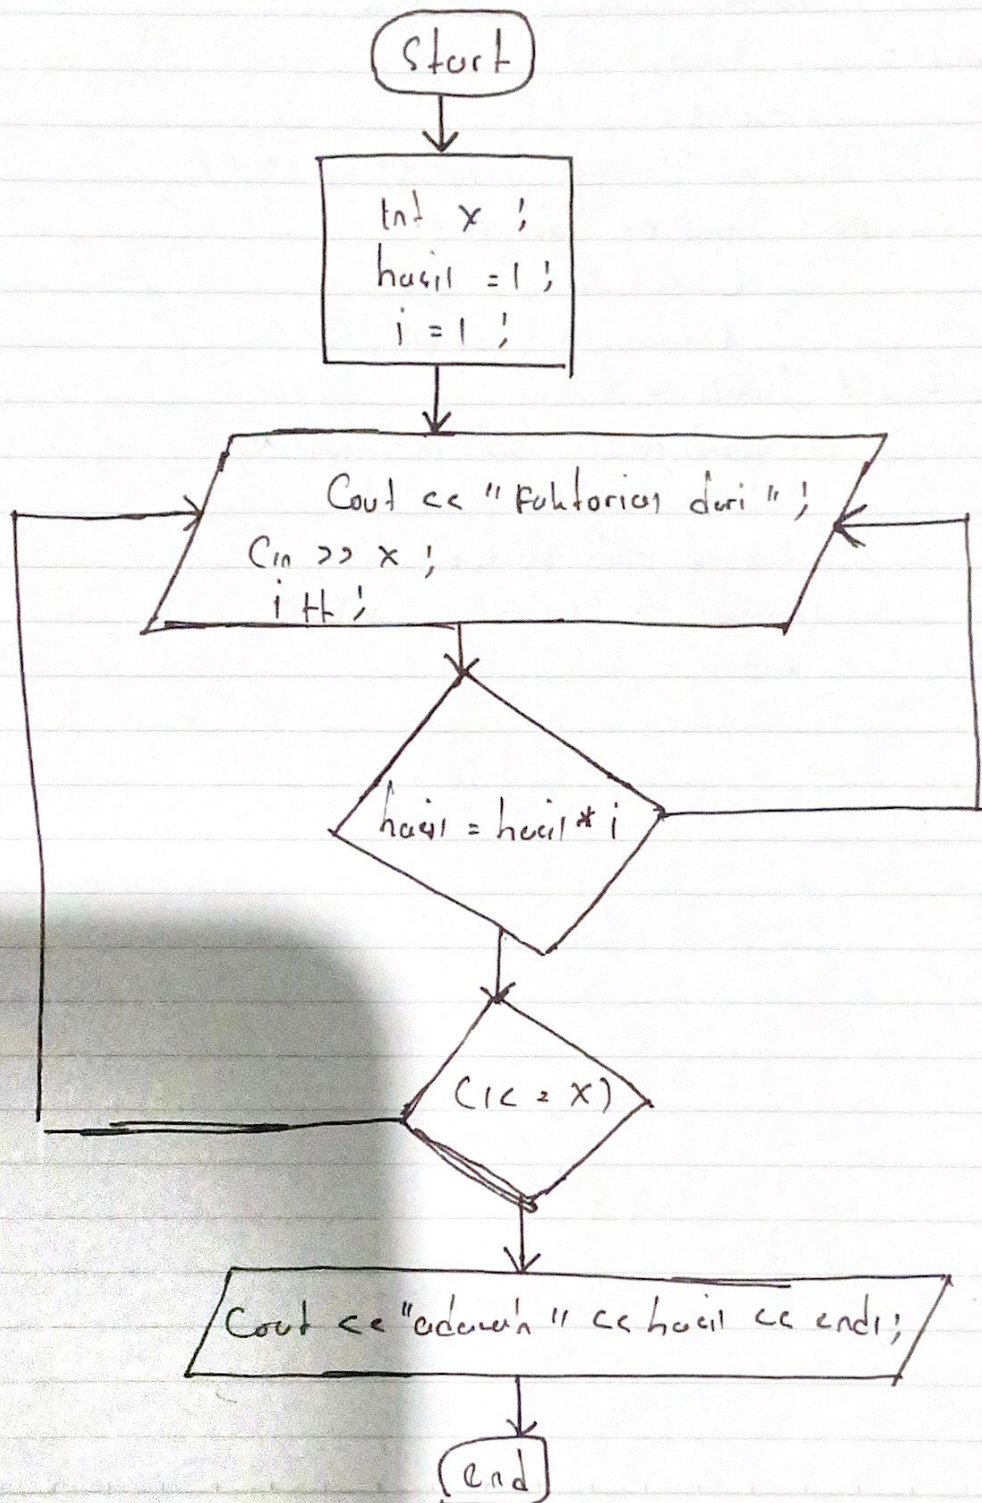 Start
int x ;
hasil = 1 ;
i = 1 ;
Cout << "Faktorial dari " ;
Cin >> x ;
i ++ ;
hasil = hasil * i
(i < = x)
Cout << "adalah " << hasil << endl;
end